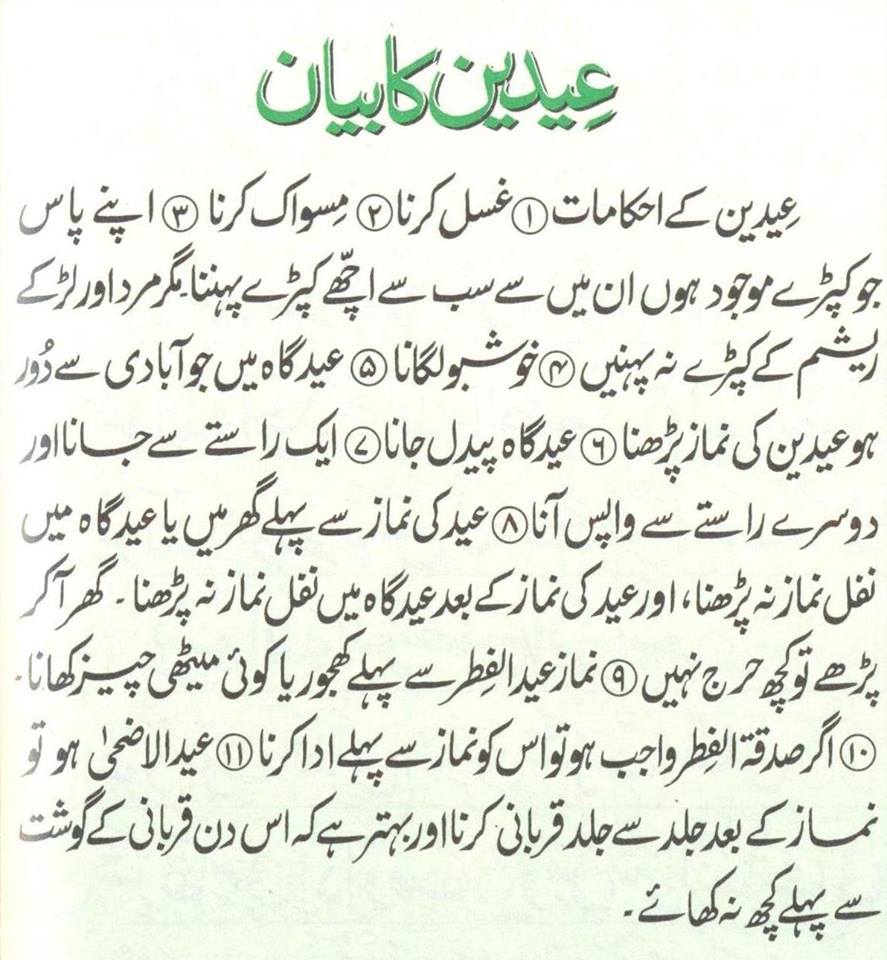 عِیدین کا بیان
عِیدین کے احکامات ① غسل کرنا ② مِسواک کرنا ③ اپنے پاس
جو کپڑے موجود ہوں ان میں سے سب سے اچھّے کپڑے پہننا۔ مگر مرد اور لڑکے
ریشم کے کپڑے نہ پہنیں ④ خوشبو لگانا ⑤ عیدگاہ میں جو آبادی سے دُور
ہو عیدین کی نماز پڑھنا ⑥ عیدگاہ پیدل جانا ⑦ ایک راستے سے جانا اور
دوسرے راستے سے واپس آنا ⑧ عید کی نماز سے پہلے گھر میں یا عیدگاہ میں
نفل نماز نہ پڑھنا، اور عید کی نماز کے بعد عیدگاہ میں نفل نماز نہ پڑھنا۔ گھر آکر
پڑھے تو کچھ حرج نہیں ⑨ نماز عید الفِطر سے پہلے کھجور یا کوئی میٹھی چیز کھانا۔
⑩ اگر صدقۃ الفِطر واجب ہو تو اس کو نماز سے پہلے ادا کرنا ⑪ عید الاضحیٰ ہو تو
نماز کے بعد جلد سے جلد قربانی کرنا اور بہتر ہے کہ اس دن قربانی کے گوشت
سے پہلے کچھ نہ کھائے۔